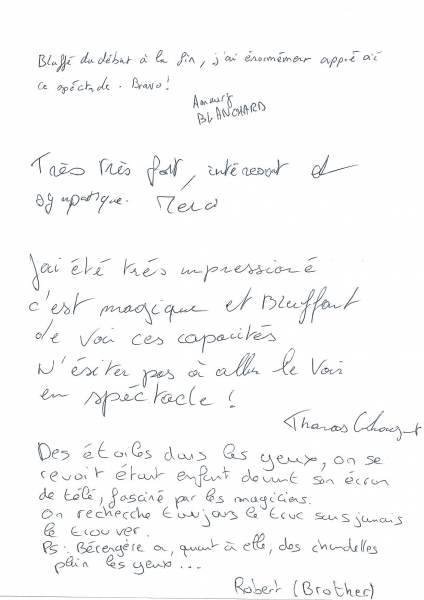 Bluffé du début à la fin, j'ai énormément apprécié
ce spéctacle. Bravo!
Amaury
BLANCHARD
Très très fort, intéressant et
sympatique. Merci
J'ai été très impressioné
c'est magique et Bluffant
de voir ces capacités
N'ésiter pas à aller le Voir
en spéctacle !
Thomas
Des étoiles dans les yeux, on se
revoit étant enfant devant son écran
de télé, fasciné par les magiciens.
On recherche toujours le truc sans jamais
le trouver.
PS : Bérengère a, quant à elle, des chandelles
plein les yeux...
Robert (Brother)